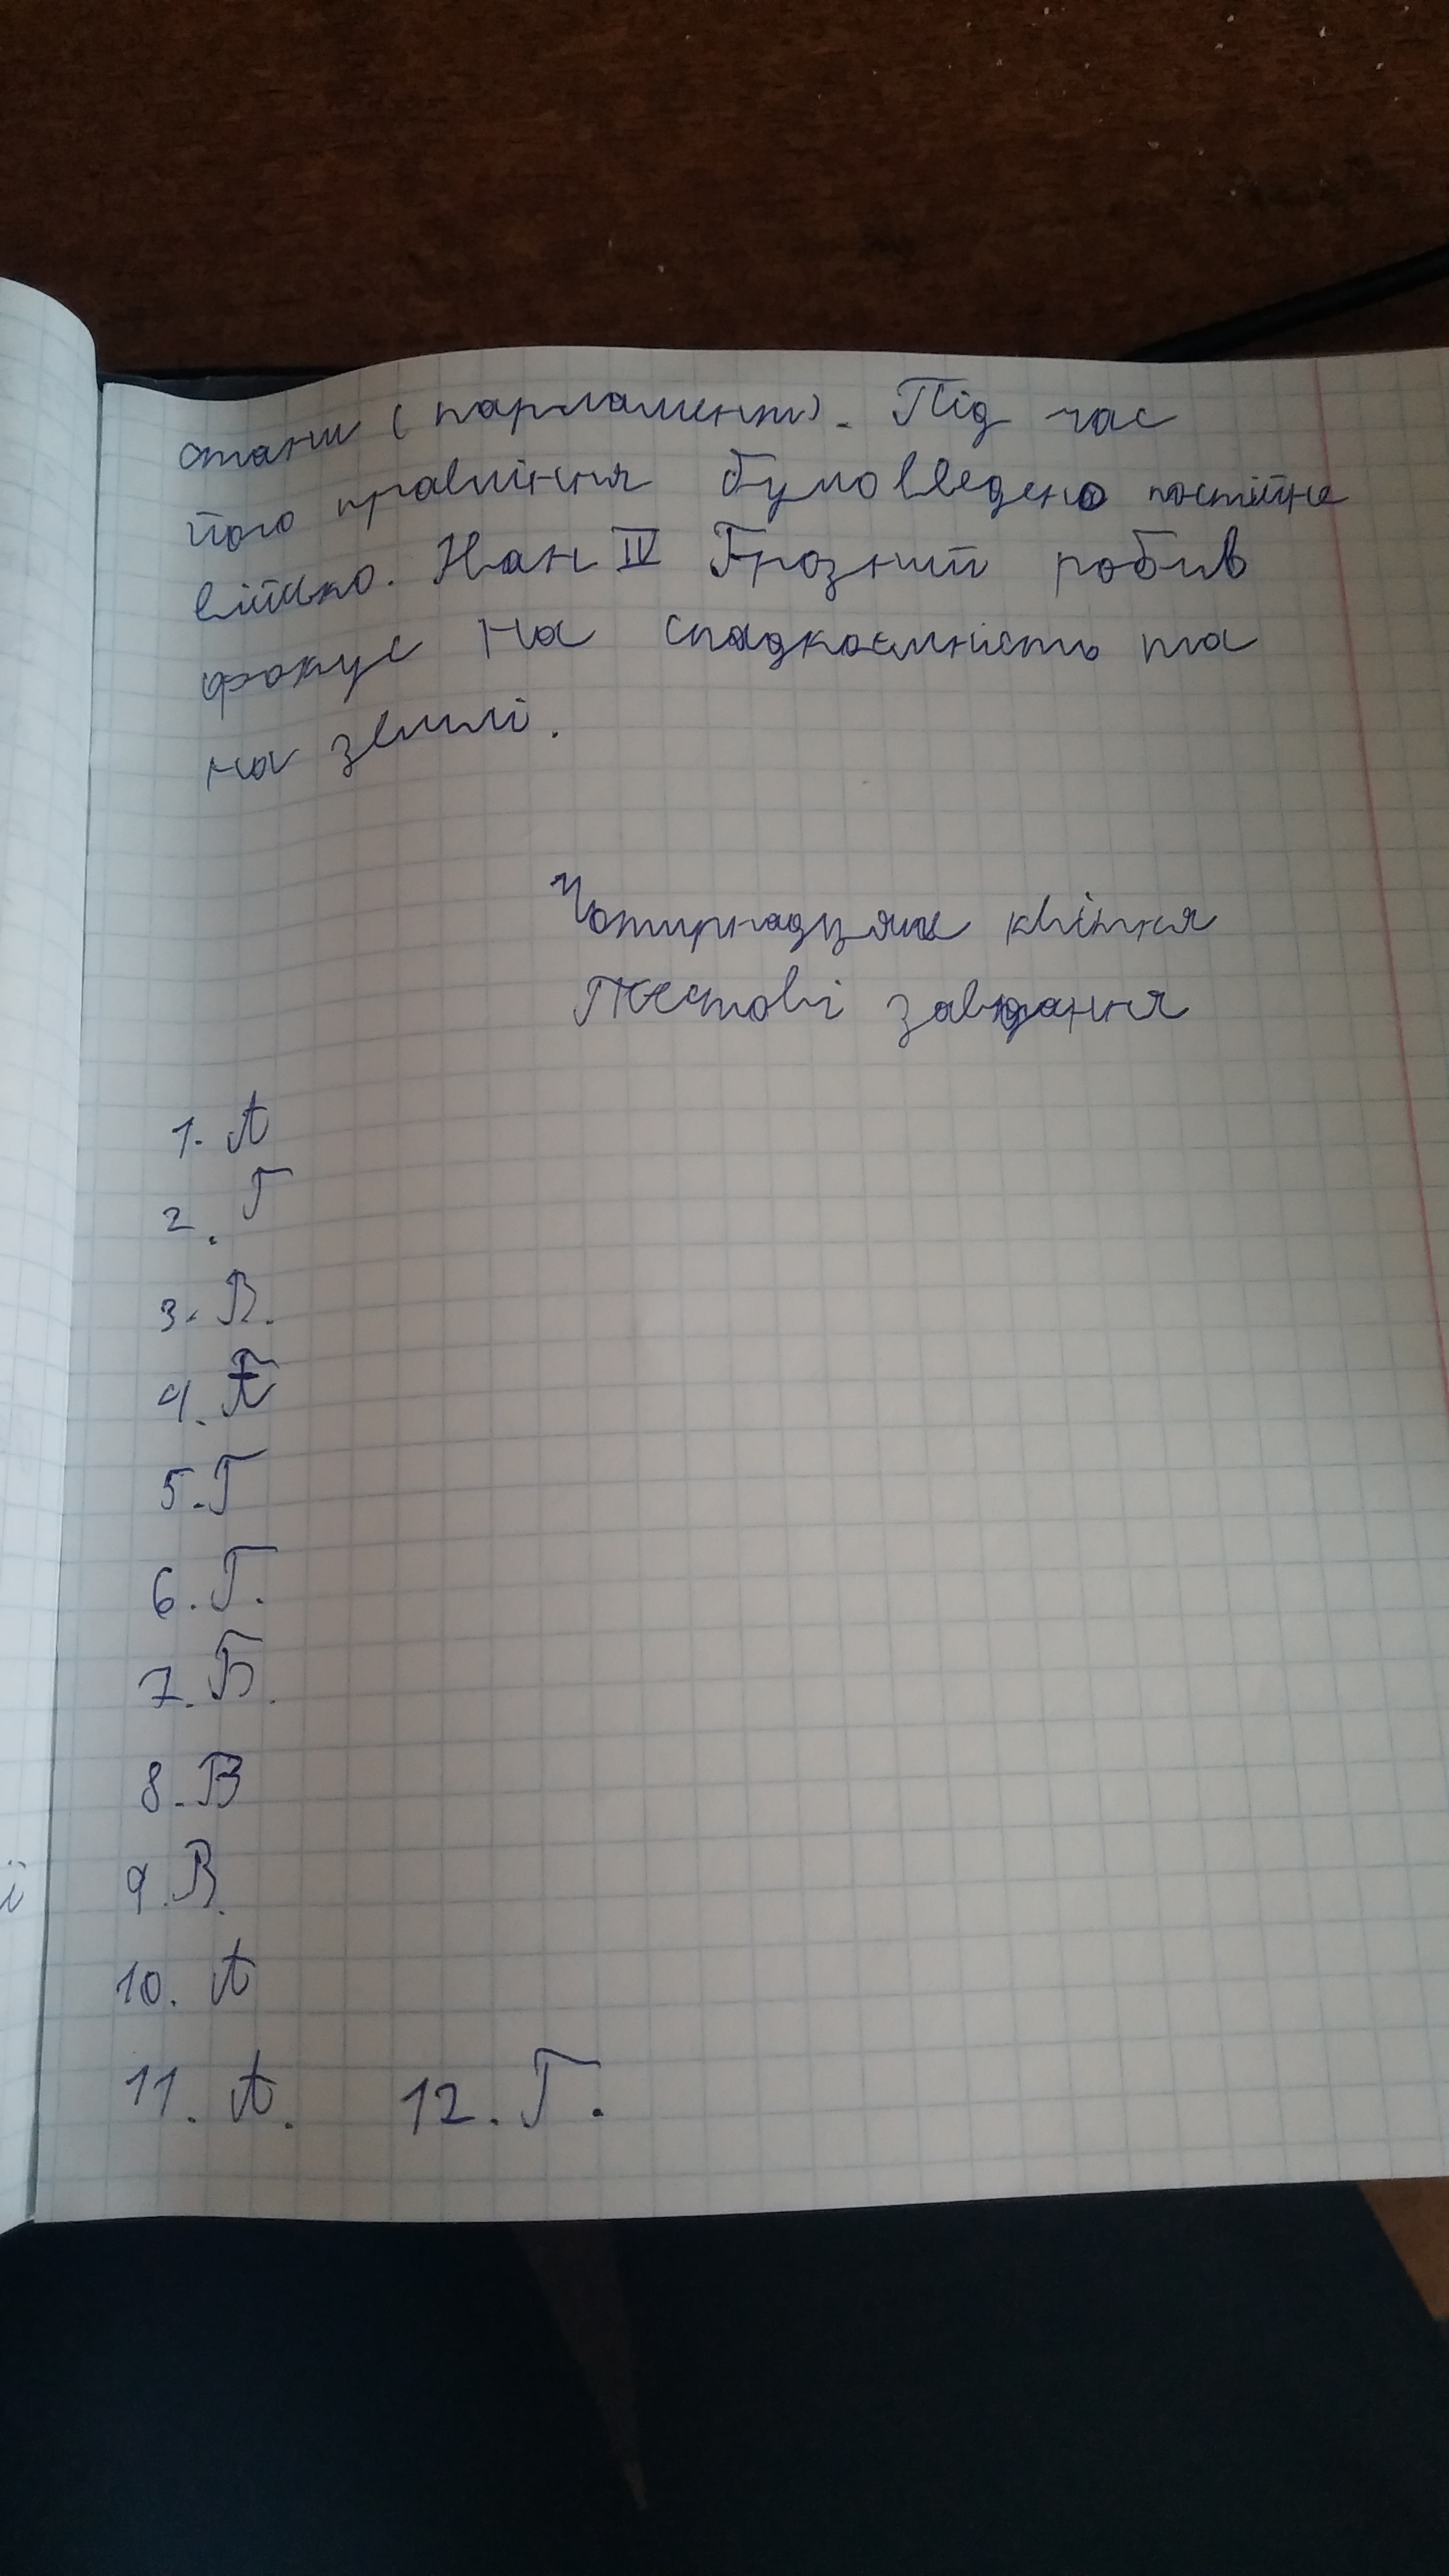 стани (парламент). Під час
його правління було введено постійне
військо. Иан IV Грозний робив
фокус на спадкоємність та
на землі.
Чотирнадцяте квітня
Тестові завдання
1. А
2. Г
3. В.
4.
5. Г
6. Г.
7. Б.
8. В
9. В.
10. А
11. А. 12. Г.
ї